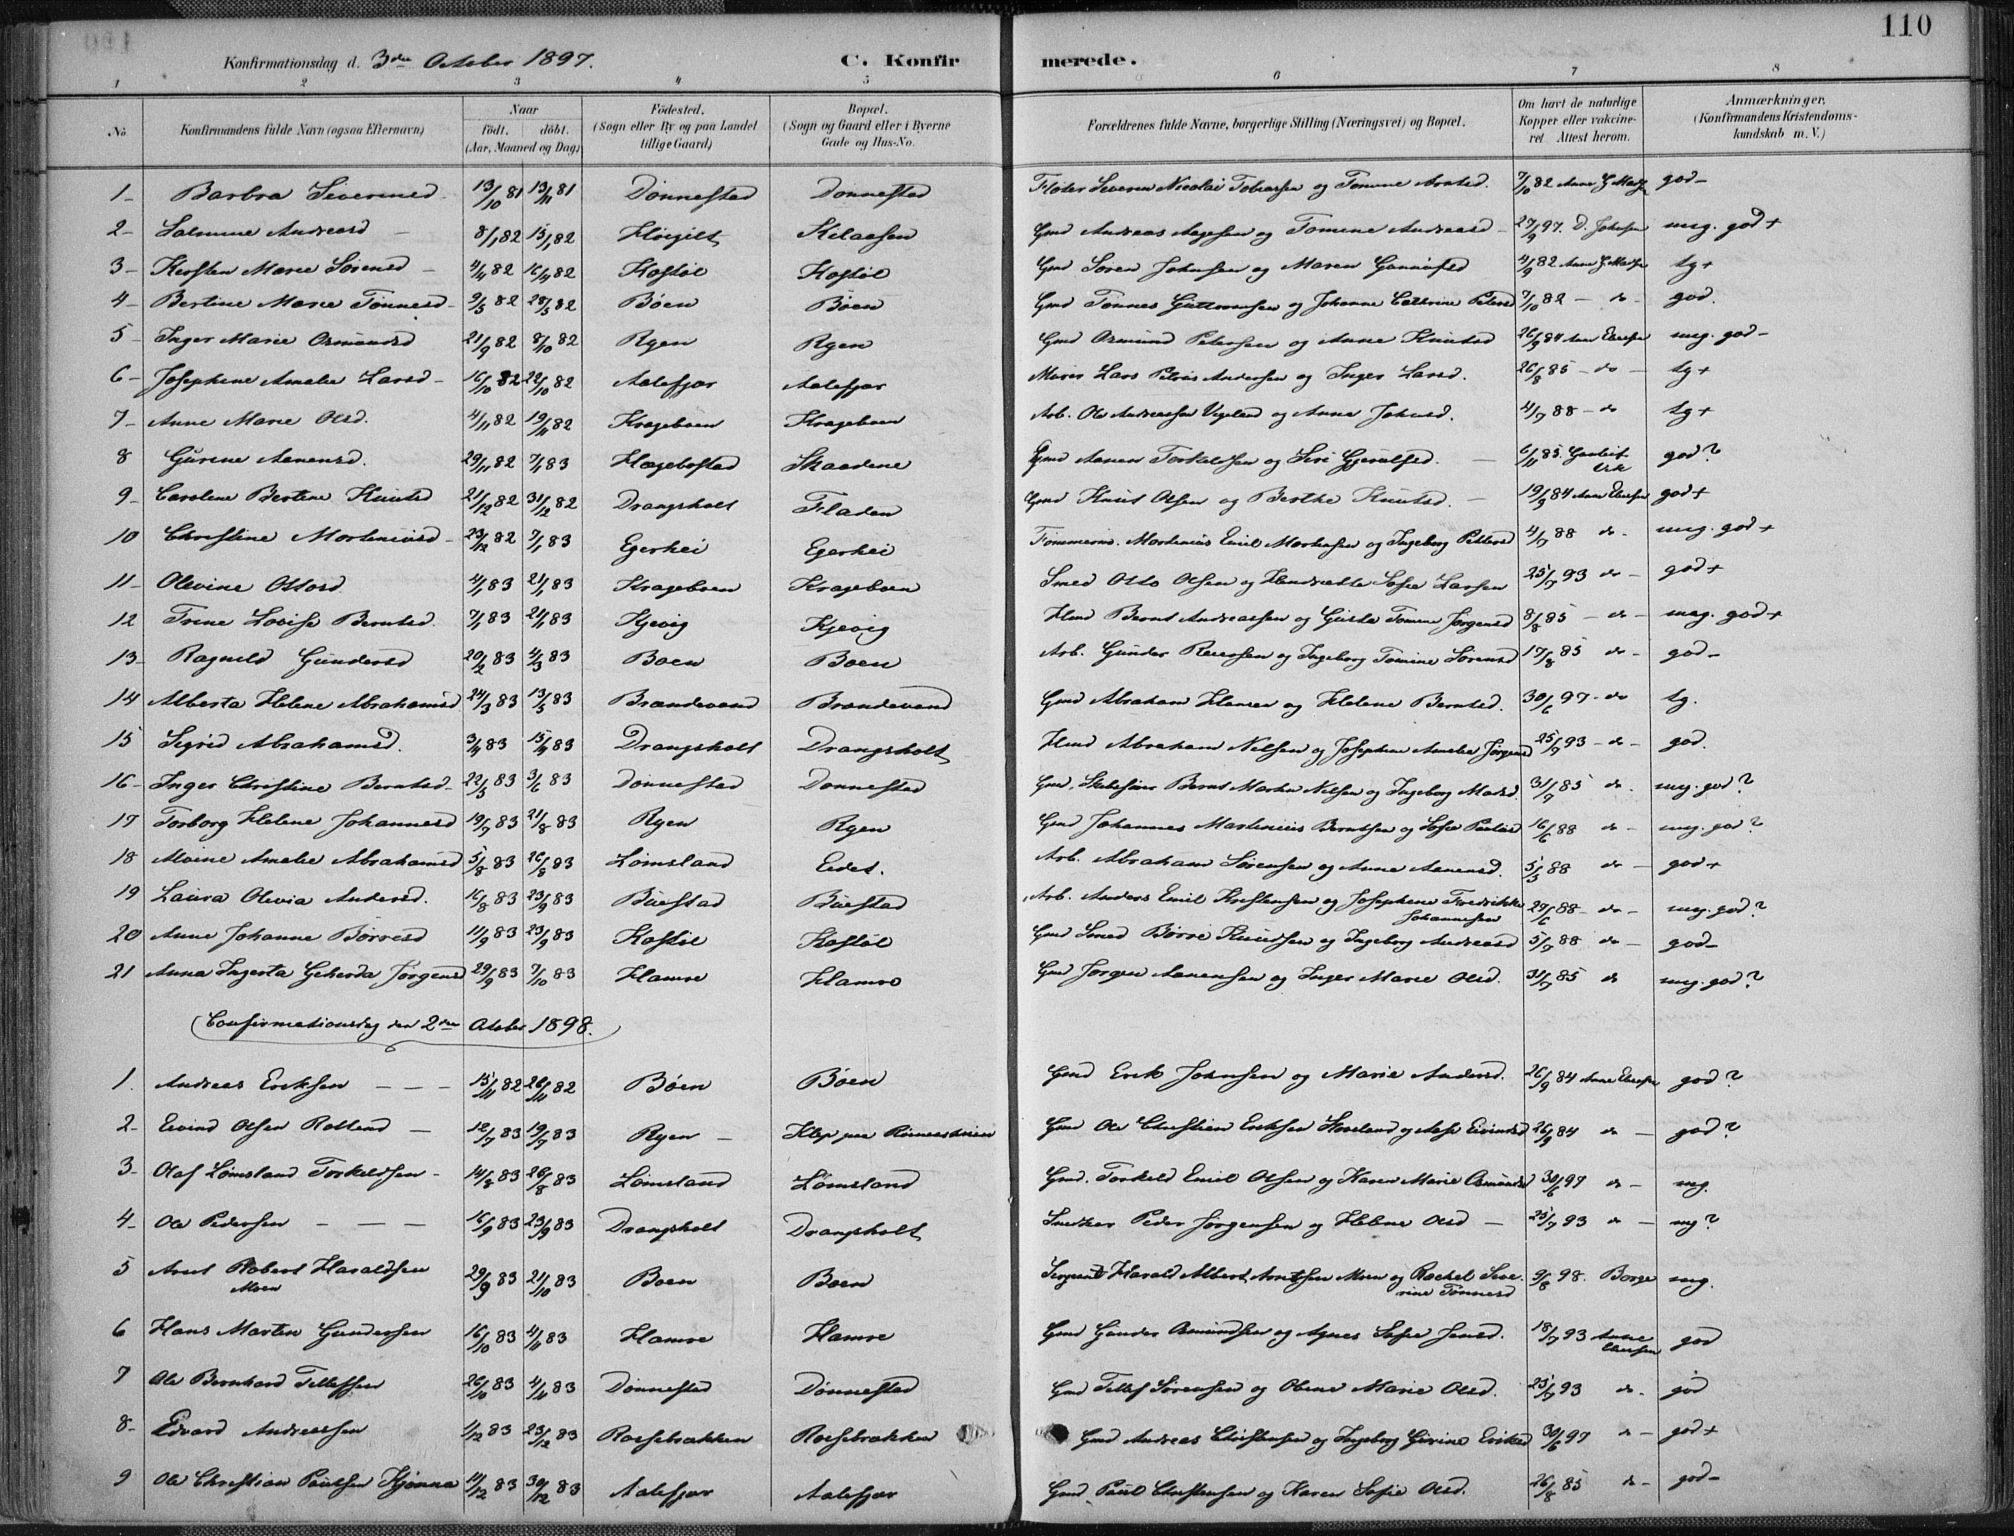 110
Konfirmationsdag d. 3die October 1897. C. Konfirmerede.
1 2 3 4 5 6 7 8
No Konfirmandens fulde Navn (ogsaa Efternavn) Naar født. døbt. (Aar, Maaned og Dag) Fødested. (Sogn eller By og paa Landet tillige Gaard) Bopæl. (Sogn og Gaard eller i Byerne Gade og Hus-No. Forældrenes fulde Navne, borgerlige Stilling (Næringsvei) og Bopæl. Om havt de naturlige Kopper eller vakcineret Attest herom. Anmærkninger, (Konfirmandens Kristendomskundskab m. V.)
1- Barbra Severinsd 13/10 81 13/11 81 Dønnestad Dønnestad Fløter Severin Nicolai Tobiassen og Tomine Arntsd. 7/10 82 Anne G. god-
2- Salmine Andreasd - 8/1 82 15/1 82 Kilaasen Gmd Andreas Aagesen og Tomine Andreasd - 27/9 97. D. Johnsen mg. god +
3- Kirsten Marie Sørensd - 4/4 82 16/4 82 Kostøl Kostøl Gmd Søren Johnsen og Maren Gunnufsd 4/9 82 Anne G. tg+
4- Bertine Marie Tønnesd - 9/5 82 28/5 82 Bøen Bøen Gmd Tønnes Guttormsen og Johanne Cathrine Petersd 7/10 82 - do - god.
5- Inger Marie Osmundsd 21/9 82 8/10 82 Ryen Ryen Gmd Osmund Petersen og Anne Knutsd 26/9 84 Anne Ellensen mg. god-
6- Josephine Amalie Larsd - 16/10 82 22/10 82 Aalefjær Aalefjær Murer Lars Petrus Andersen og Inger Larsd. 26/8 85 - do - tg+
7- Anne Marie Olsd. 4/11 82 19/11 82 Krageboen Krageboen Arb. Ole Andreassen Vegeland og Anna Johnsd. 4/7 88 - do tg+
8 Gurine Aanensd. 29/11 82 7/1 83 Hægebostad Skaadene Gmd Aanen Torkelsen og Siri Gjerulfsd. - 6/11 85. god?
9- Caroline Bertine Knutsd 21/12 82 31/12 82 Drangsholt Fladen Gmd Knut Olsen og Berthe Knutsd. - 19/9 84 Anne Ellensen god+
10 Christine Morteniusd - 23/12 82 7/1 83 Egerhei Egerhei Tømmerm. Mortenius Emil Mortensen og Ingeborg Pettersd 4/7 88 do - mg. god +
11- Olevine Ottosd 4/1 83 21/1 83 Krageboen Krageboen Smed Otto Olsen og Hendrikke Sofie Larsen 25/7 93 do - god+
12 Trine Lovise Berntsd. 7/1 83 21/1 83 Kjevig Kjevig Hmd Bernt Andreassen og Gusta Tomine Jørgensd 8/8 85 - do - mg. god+
13- Ragnild Gundersd 20/2 83 4/3 83 Boen Boen Arb. Gunder Reiersen og Ingeborg Tomine Sørensd 17/8 85 do - god-
14 Alberta Helene Abrahamsd 24/3 83 13/5 83 Brændevand Brændevand Gmd Abraham Hansen og Helene Berntsd. 30/6 97 - do tg.
15 Sigrid Abrahamsd. 3/4 83 15/4 83 Drangsholt Drangsholt Hmd Abraham Nilsen og Josephine Amalie Jørgensd 25/7 93 - do - god.
16- Inger Christine Berntsd - 22/5 83 3/6 83 Dønnestad Dønnestad Gmd, Bernt Martin Nilsen og Ingeborg Madsd. 31/7 85 do - mg. god?
17 Torborg Helene Johannesd 19/7 83 21/8 83 Ryen Ryen Gmd Johannes Martinius Berntsen og Sofie Paulsd 16/6 88 do - mg. god?
18 Alvine Amalie Abrahamsd 5/8 83 26/8 83 Lømsland Eidet. Arb. Abraham Sørensen og Anne Aanensd. 5/5 88 do - god+
19 Laura Olevia Andersd. 16/8 83 23/9 83 Buestad Buestad Arb. Anders Emil Kristensen og Josephine Fredrikke Johannesen 29/6 88 - do - mg. god?
20 Anne Johanne Børresd 11/9 83 23/9 83 Kostøl Kostøl Gmd Smed Børre Knudsen og Ingeborg Andreasd 5/7 88 do - god-
21 Anna Ingerta Geherda Jørgensd 29/9 83 7/10 83 Hamre Hamre Gmd Jørgen Aanensen og Inger Marie Olsd. 31/7 85 do mg. god?
(Confirmationsdag den 2den October 1898.)
1. Andreas Eriksen - - - 15/11 82 26/11 82 Bøen Bøen Gmd Erik Johnsen og Marie Andersd. 26/9 84 Anne Ellensen god?
2- Eivind Olsen - 12/7 83 19/7 83 Ryen - Gmd Ole Christian Eriksen og Aase Eivindsd 26/9 84 do - god?
3- Olaf Lømsland Torkeldsen - 14/8 83 26/8 83 Lømsland Lømsland Gmd. Torkeld Emil Olsen og Karen Marie Osmundsd 30/6 97 do - mg.
4- Ole Pedersen - - - 16/9 83 23/9 83 Drangsholt Drangsholt Snedker Peder Jørgensen og Helene Olsd - 25/7 93 do - mg?
5 Arnt Robert Haraldsen Moen 29/9 83 21/10 83 Boen Boen Sergeant Harald Albert Arntsen Moen og Rachel Severine Tønnesd 9/8 98. Borge mg.
6 Hans Martin Gundersen 16/10 83 4/11 83 Hamre Hamre Gmd Gunder Osmundsen og Agnes Sofie Jensd. 18/7 93 Anne Ellensen god
7 Ole Bernhard Tellefsen 26/10 83 4/11 83 Dønnestad Dønnestad Gmd Tellef Sørensen og Oline Marie Olsd. 25/7 93 do. god
8- Edvard Andreassen 1/12 83 23/12 83 Rossebrækken Rossebrækken Gmd Andreas Christensen og Ingeborg Gurine Eriksd 30/6 97 do - god+
9 Ole Christian Paulsen Kjønna 11/12 83 30/12 83 Aalefjær Aalefjær Gmd Paul Christensen og Karen Sofie Olsd. 26/8 85 do - god-